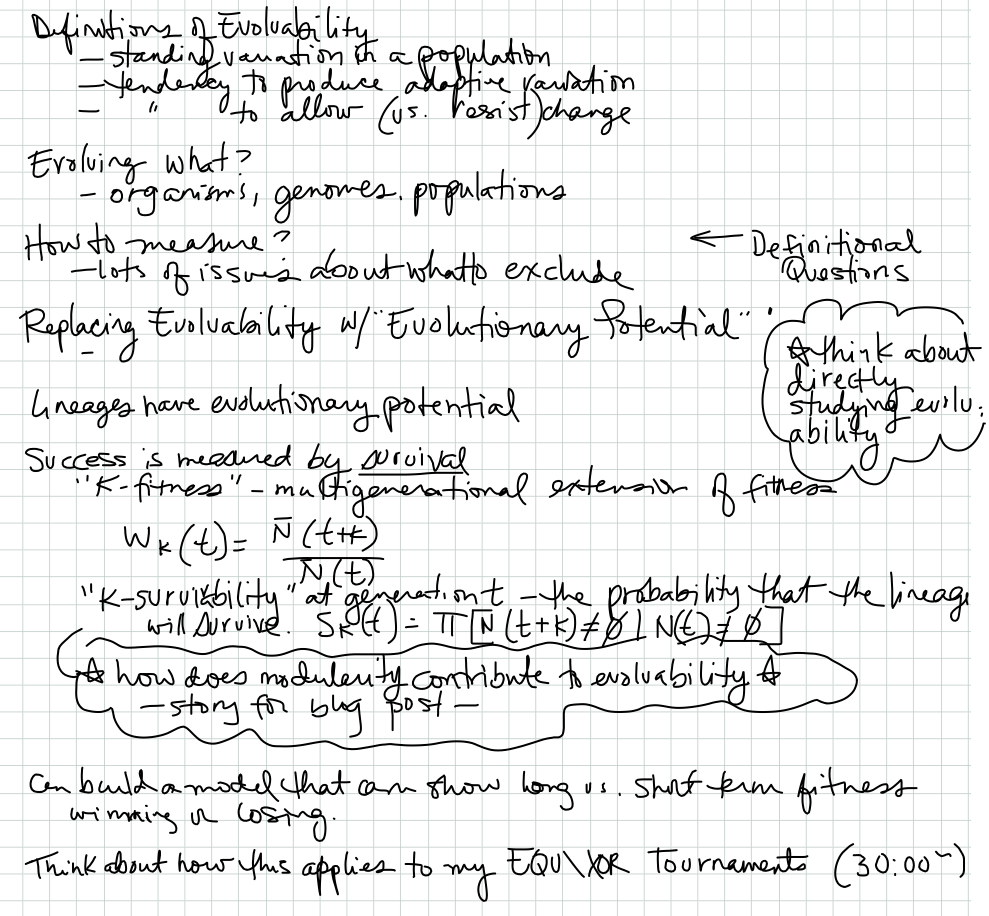 Definitions of Evolvability
— standing variation in a population
— tendency to produce adaptive variation
— " to allow (vs. resist) change
Evolving what?
- organisms, genomes, populations
How to measure?
— lots of issues about what to exclude
← Definitional
Questions
Replacing Evolvability w/ "Evolutionary Potential"
-
☆ think about
directly
studying evolv.
ability
Lineages have evolutionary potential
Success is measured by survival
"K-fitness" - multigenerational extension of fitness
W_K(t) = N̄(t+k) / N̄(t)
"K-survivability" at generation t — the probability that the lineage
will survive. S_K(t) = π[N(t+k) ≠ ∅ | N(t) ≠ ∅]
☆ how does modularity contribute to evolvability ☆
— story for blog post —
Can build a model that can show long vs. short term fitness
winning or losing.
Think about how this applies to my EQU\XOR Tournaments (30:00~)